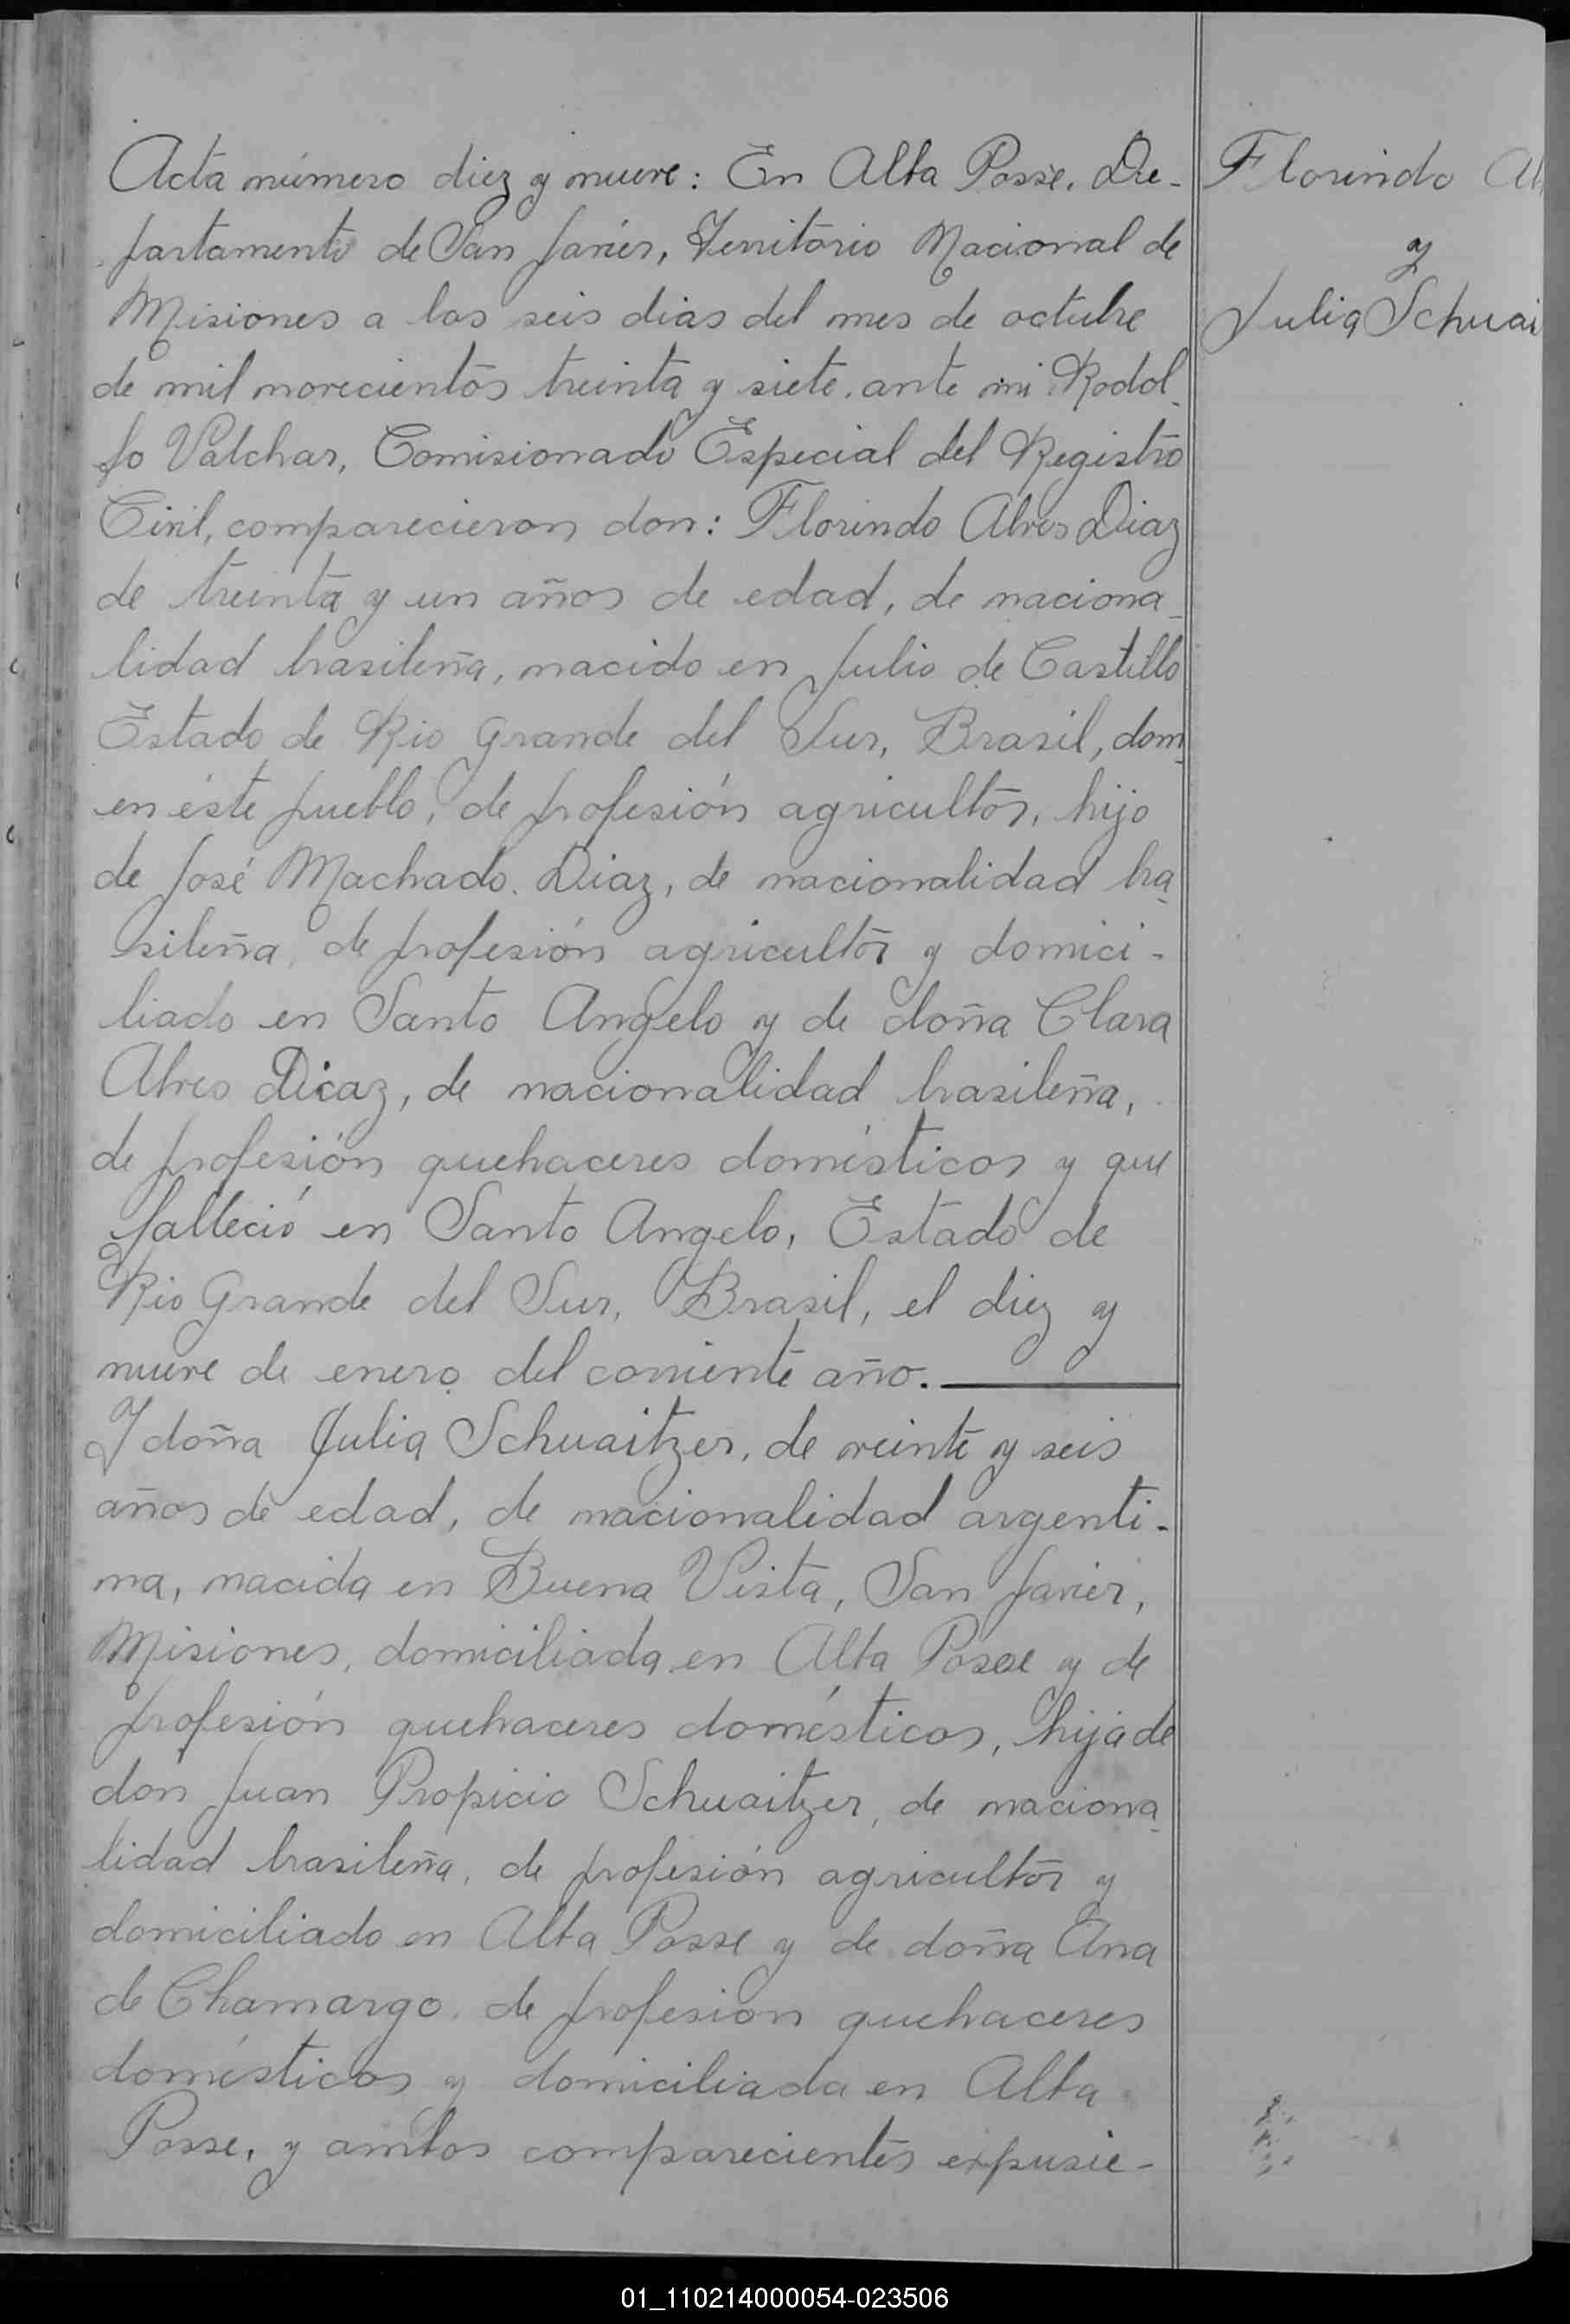 Acta número diez y nueve: En Alba Posse, De-
partamento de San Javier, Territorio Nacional de
Misiones a los seis dias del mes de octubre
de mil novecientos treinta y siete, ante mi Rodol-
fo Valchar, Comisionado Especial del Registro
Civil, comparecieron don: Florindo Alves Diaz
de treinta y un años de edad, de naciona-
lidad brasileña, nacido en Julio de Castillo
Estado de Rio Grande del Sur, Brasil, dom
en éste pueblo, de profesión agricultor, hijo
de José Machado Diaz, de nacionalidad bra-
sileña, de profesión agricultor y domici-
liado en Santo Angelo y de doña Clara
Alves Dicaz, de nacionalidad brasileña,
de profesión quehaceres domésticos y que
falleció en Santo Angelo, Estado de
Rio Grande del Sur, Brasil, el diez y
nueve de enero del corriente año.
Y doña Julia Schuaitzer, de veinte y seis
años de edad, de nacionalidad argenti-
na, nacida en Buena Vista, San Javier,
Misiones, domiciliada en Alba Posse y de
profesión quehaceres domésticos, hija de
don Juan Propicio Schuaitzer, de naciona-
lidad brasileña, de profesión agricultor y
domiciliado en Alba Posse y de doña Ana
de Chamargo, de profesion quehaceres
domésticos y domiciliada en Alba
Posse, y ambos comparecientes expusie-
Florindo Al
y
Julia Schuai
01_110214000054-023506